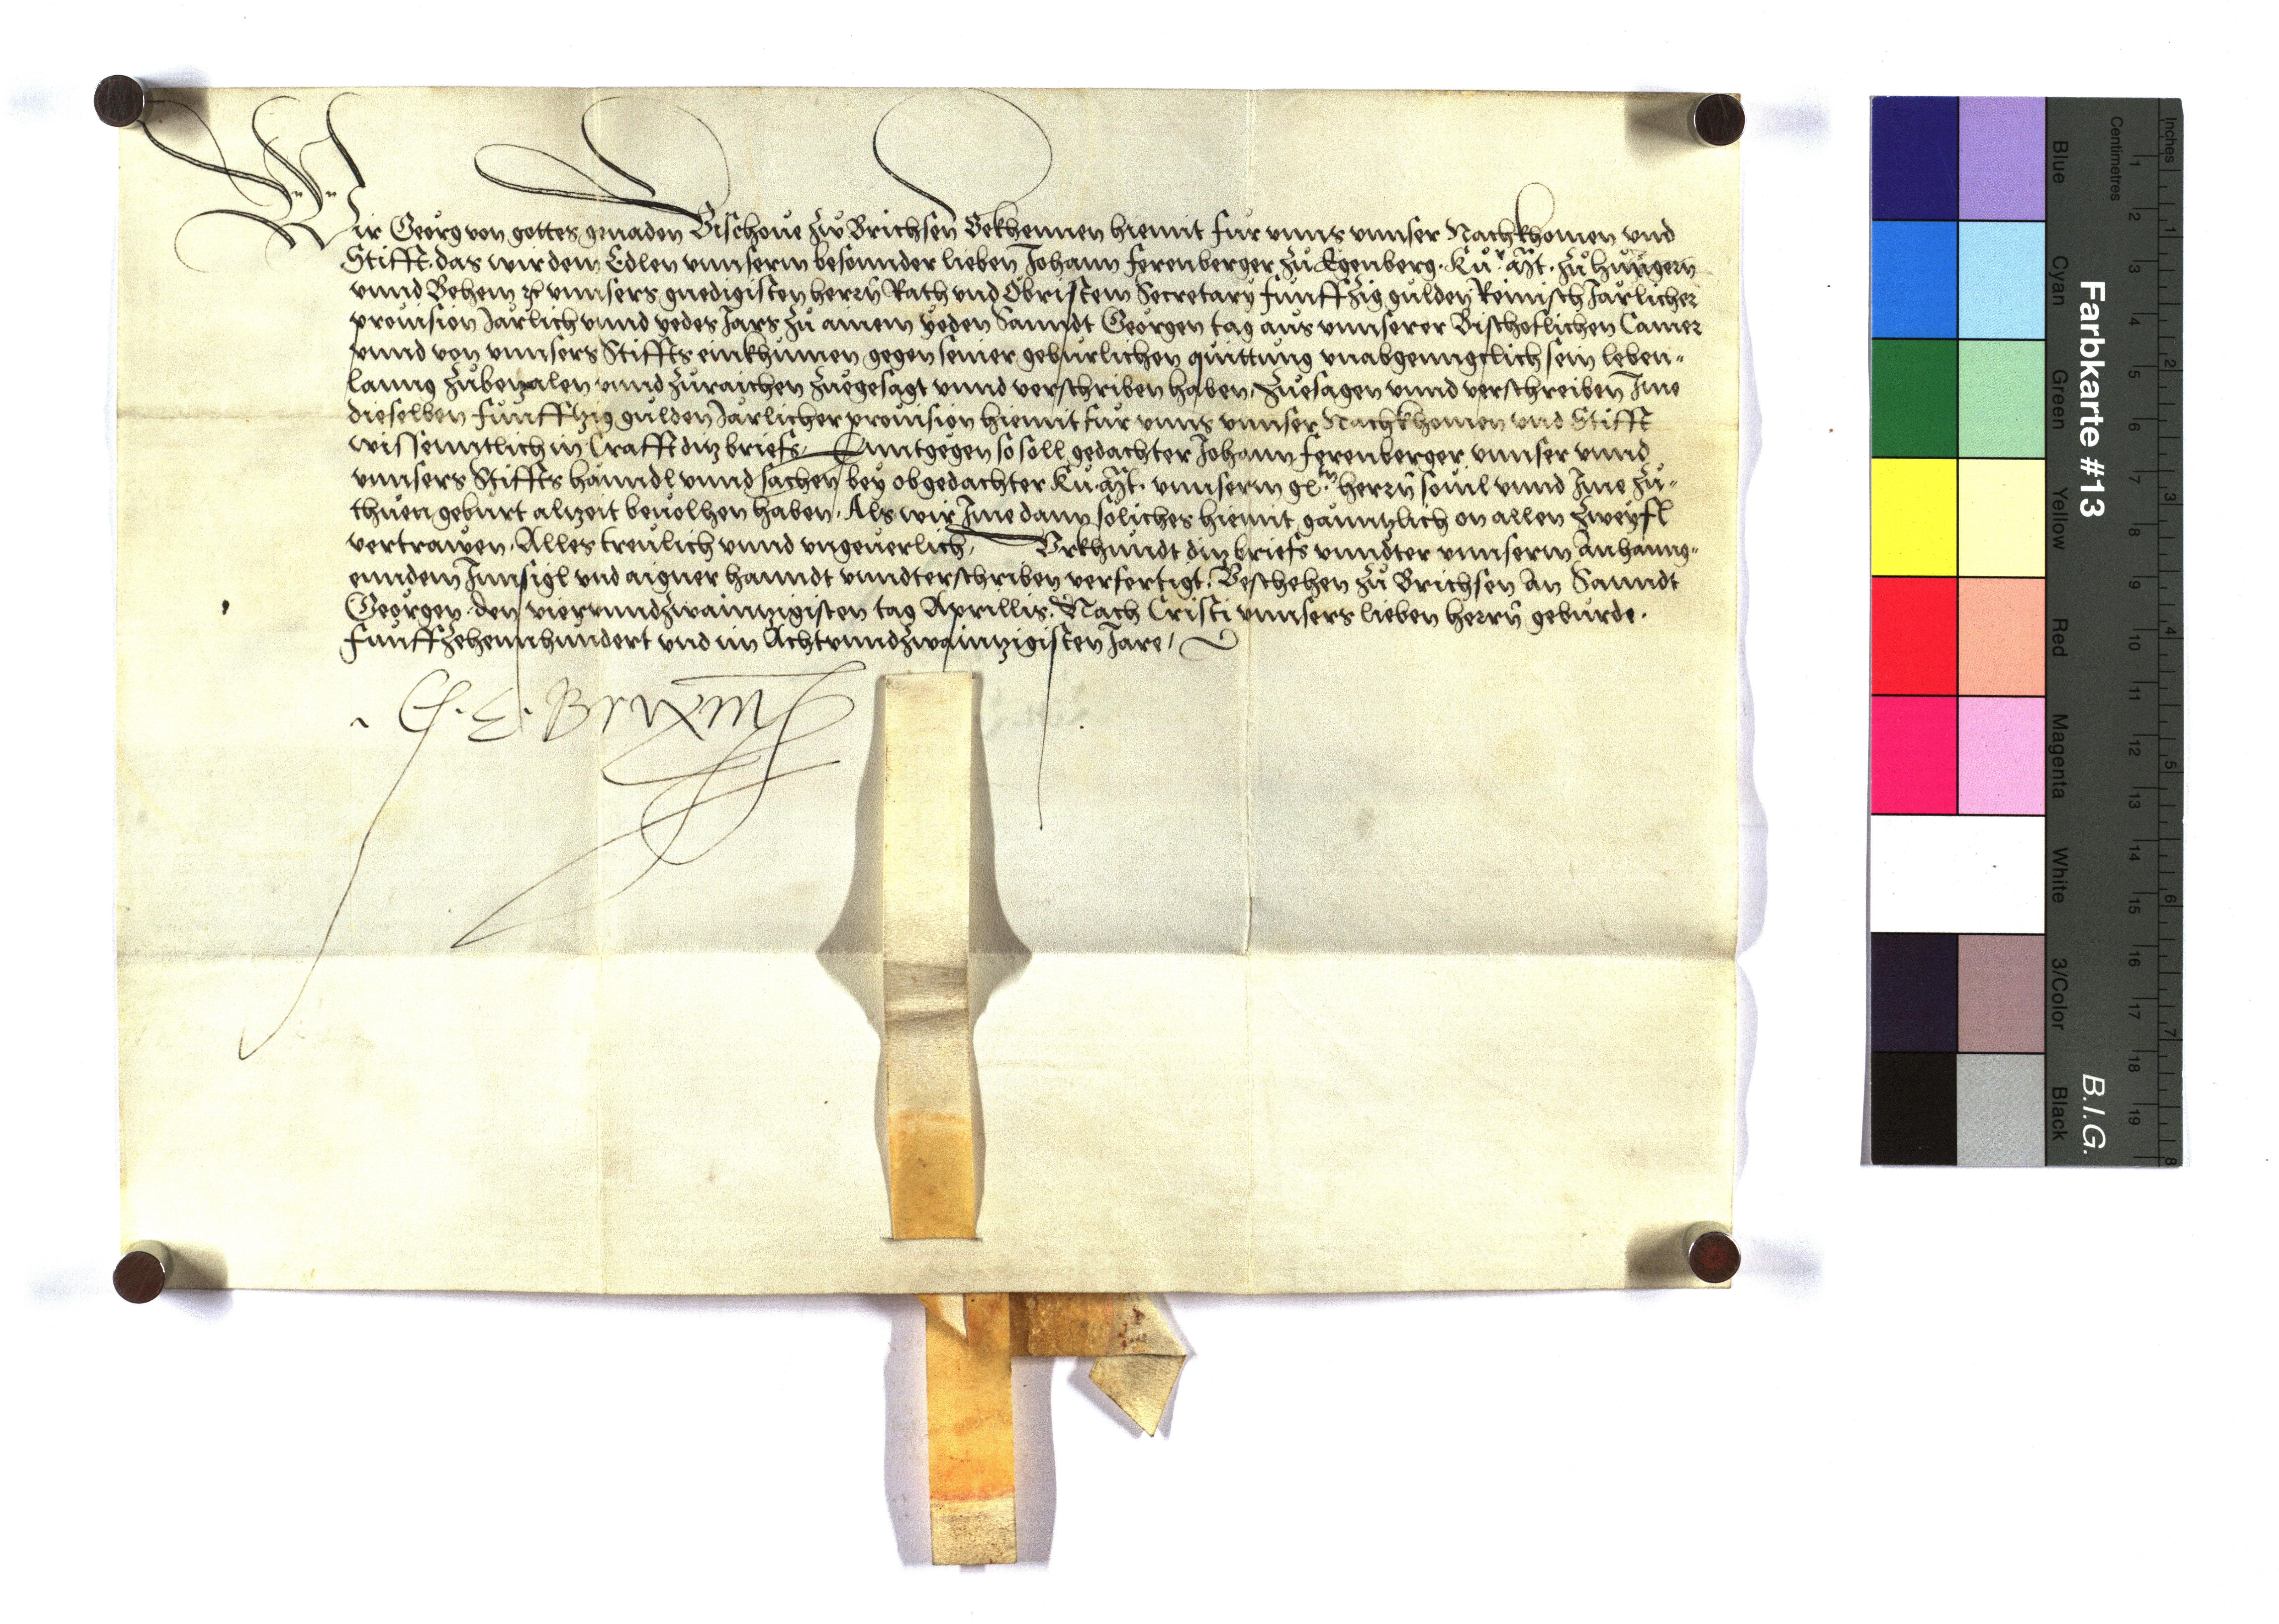 Wir Georg von gottes gnaden Bischoue zu Brichsen Bekhennen hiemit fur vnns vnnser Nachkhomen vnd
Stifft. das wir dem Edlen vnnserm besonnder lieben Johann Ferenberger zu Egenberg. Ku.r Mt. zu hungern
vnnd Behem ꝛc vnnsers gnedigisten herrn Rath vnd Obristem Secretary funffzig gulden Reinisch Jarlicher
prouision Jarlich vnnd yedes Jars zu ainem yeden Sanndt Georgen tag aus vnnserer Bischoflichen Camer
vnnd von vnnsers Stiffts einkhumen gegen seiner geburlichen quittung vnabgenngclich sein leben-
lanng zubezalen vnnd zuraichen zuegesagt vnnd verschriben haben, Zuesagen vnnd verschreiben Ime
dieselben funffzig gulden Jarlicher prouision hiemit fur vnns vnnser Nachkhomen vnd Stifft
wissenntlich in Crafft ditz briefs, Enntgegen so soll gedachter Johann Ferenberger vnnser vnnd
vnnsers Stiffts hanndl vnnd sachen bey obgedachter Ku. Mt. vnnserm gl.ten herrn souil vnnd Ime zu-
thuen geburt alzeit beuolhen haben. Als wir Ime dann soliches hiemit ganntzlich on allen Zweyfl
vertrawen. Alles treulich vnnd vngeuerlich, Vrkhundt ditz briefs vnndter vnnserm Anhanng-
enndem Innsigl vnd aigner hanndt vnndterschriben verfertigt. Beschehen zu Brichsen An Sanndt
Georgen den viervnndzwaintzigisten tag Aprillis. Nach Cristi vnnsers lieben herrn geburde.
funffzehennhundert vnd im Achtvnndzwaintzigisten Jare,
Farbkarte #13
B.I.G.
Blue
Cyan
Green
Yellow
Red
Magenta
White
3/Color
Black
Centimetres
1 2 3 4 5 6 7 8 9 10 11 12 13 14 15 16 17 18 19
Inches
1 2 3 4 5 6 7 8